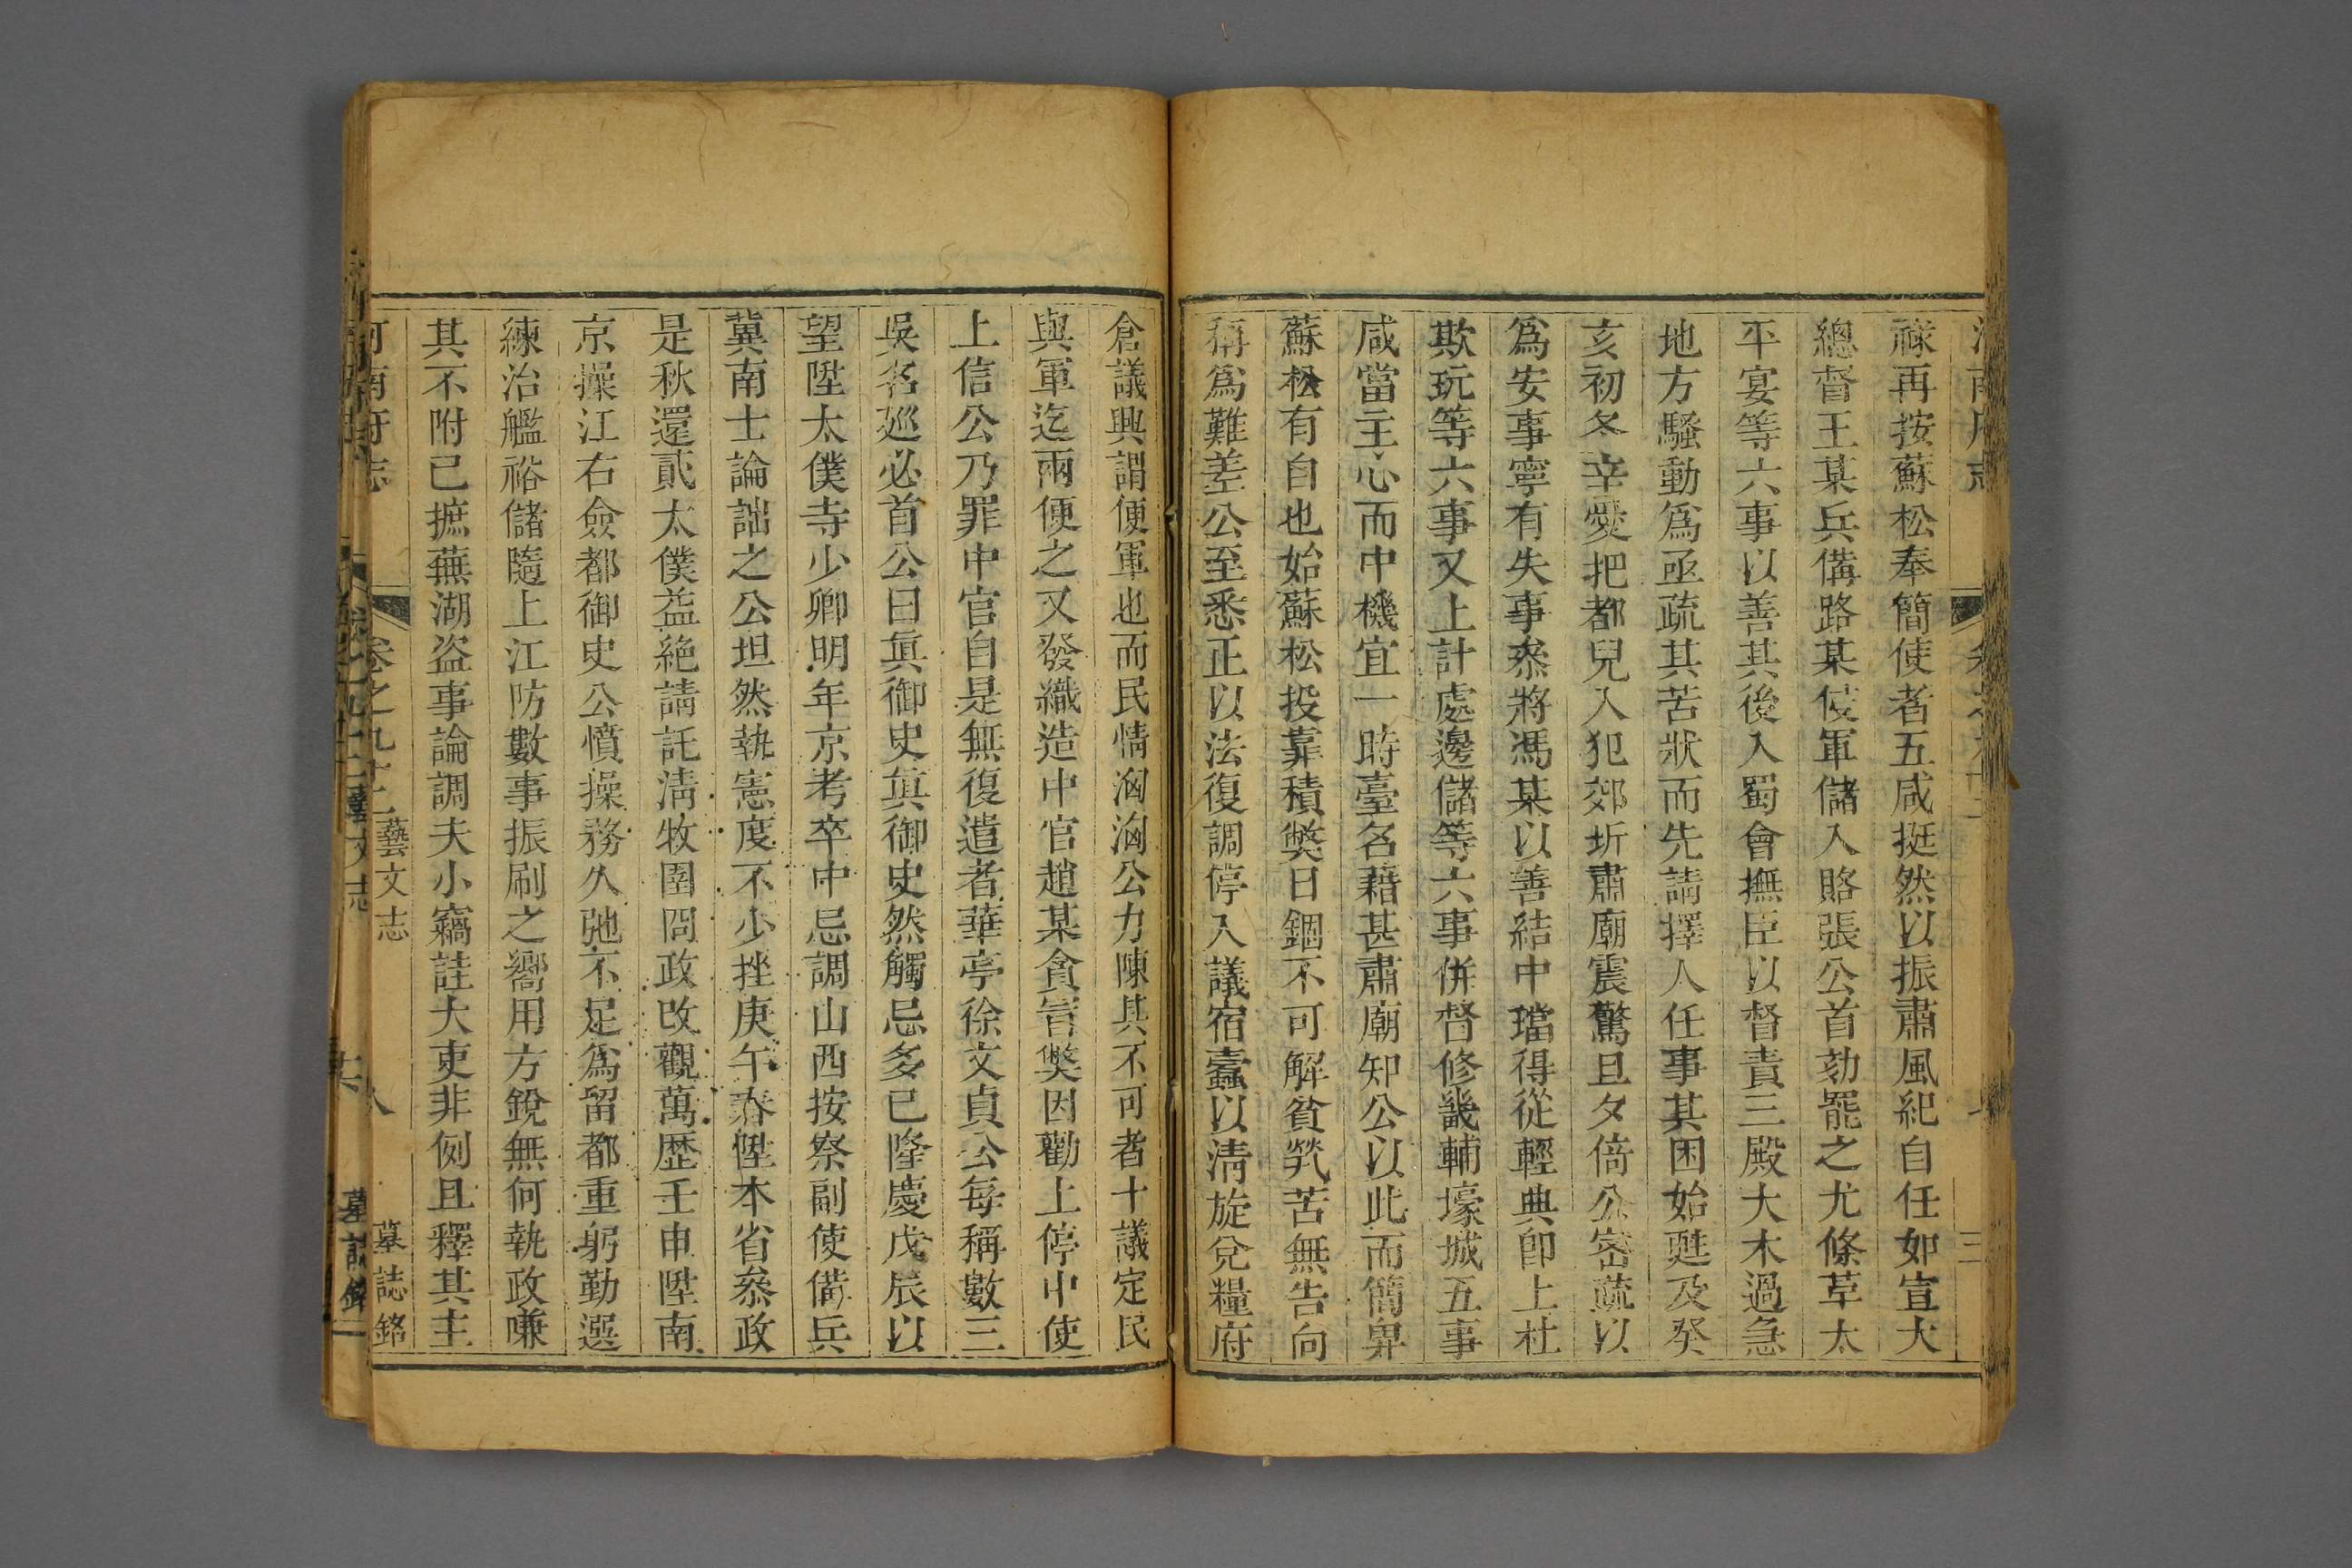 祿再按蘇松奉簡使者五咸挺然以振肅風紀自任如宣大
總督王某兵備路某侵軍儲入賂張公首劾罷之尤條草太
平宴等六事以善其後入蜀會撫臣以督責三殿大木過急
地方騷動爲亟疏其苦狀而先請擇人任事其困始甦及癸
亥初冬辛愛把都兒入犯郊圻肅廟震驚旦夕倚公密疏以
爲安事寧有失事叅將馮某以善結中璫得從輕典卽上杜
欺玩等六事又上計處邊儲等六事併督修畿輔壕城五事
咸當主心而中機宜一時臺名藉甚肅廟知公以此而簡畀
蘇松有自也始蘇松投靠積獘日錮不可解貧煢苦無告向
稱爲難差公至悉正以法復調停入議宿蠹以清旋兌糧府
倉議興謂便軍也而民情洶洶公力陳其不可者十議定民
與軍迄兩便之又發織造中官趙某貪吝獘因勸上停中使
上信公乃罪中官自是無復遣者華亭徐文貞公每稱數三
吳名廵必首公曰眞御史眞御史然觸忌多已隆慶戊辰以
望陞太僕寺少卿明年京考卒中忌調山西按察副使備兵
冀南士論詘之公坦然執憲度不少挫庚午春陞本省叅政
是秋還貳太僕益絶請託清牧圉冏政攺觀萬歷壬申陞南
京操江右僉都御史公憤操務久弛不足爲留都重躬勤選
練治艦裕儲隨上江防數事振刷之嚮用方銳無何執政嗛
其不附己摭蕪湖盜事論調夫小竊詿大吏非例且釋其主
河南府志
卷之九十二
藝文志
八
墓誌銘